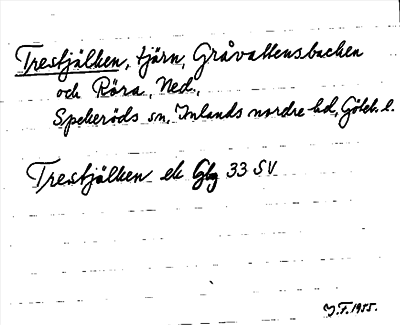 Trestjälken, tjärn, Gråvattensbacken
och Röra, Ned.,
Spekeröds sn, Inlands nordre hd, Göteb. l.
Trestjälken ek Gbg 33 SV
J.F. 1955.